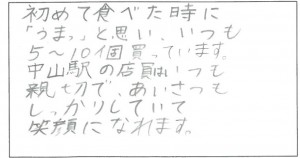 初めて食べた時に
「うまっ」と思い、いつも
5～10個買っています。
中山駅の店員はいつも
親切で、あいさつも
しっかりしていて
笑顔になれます。